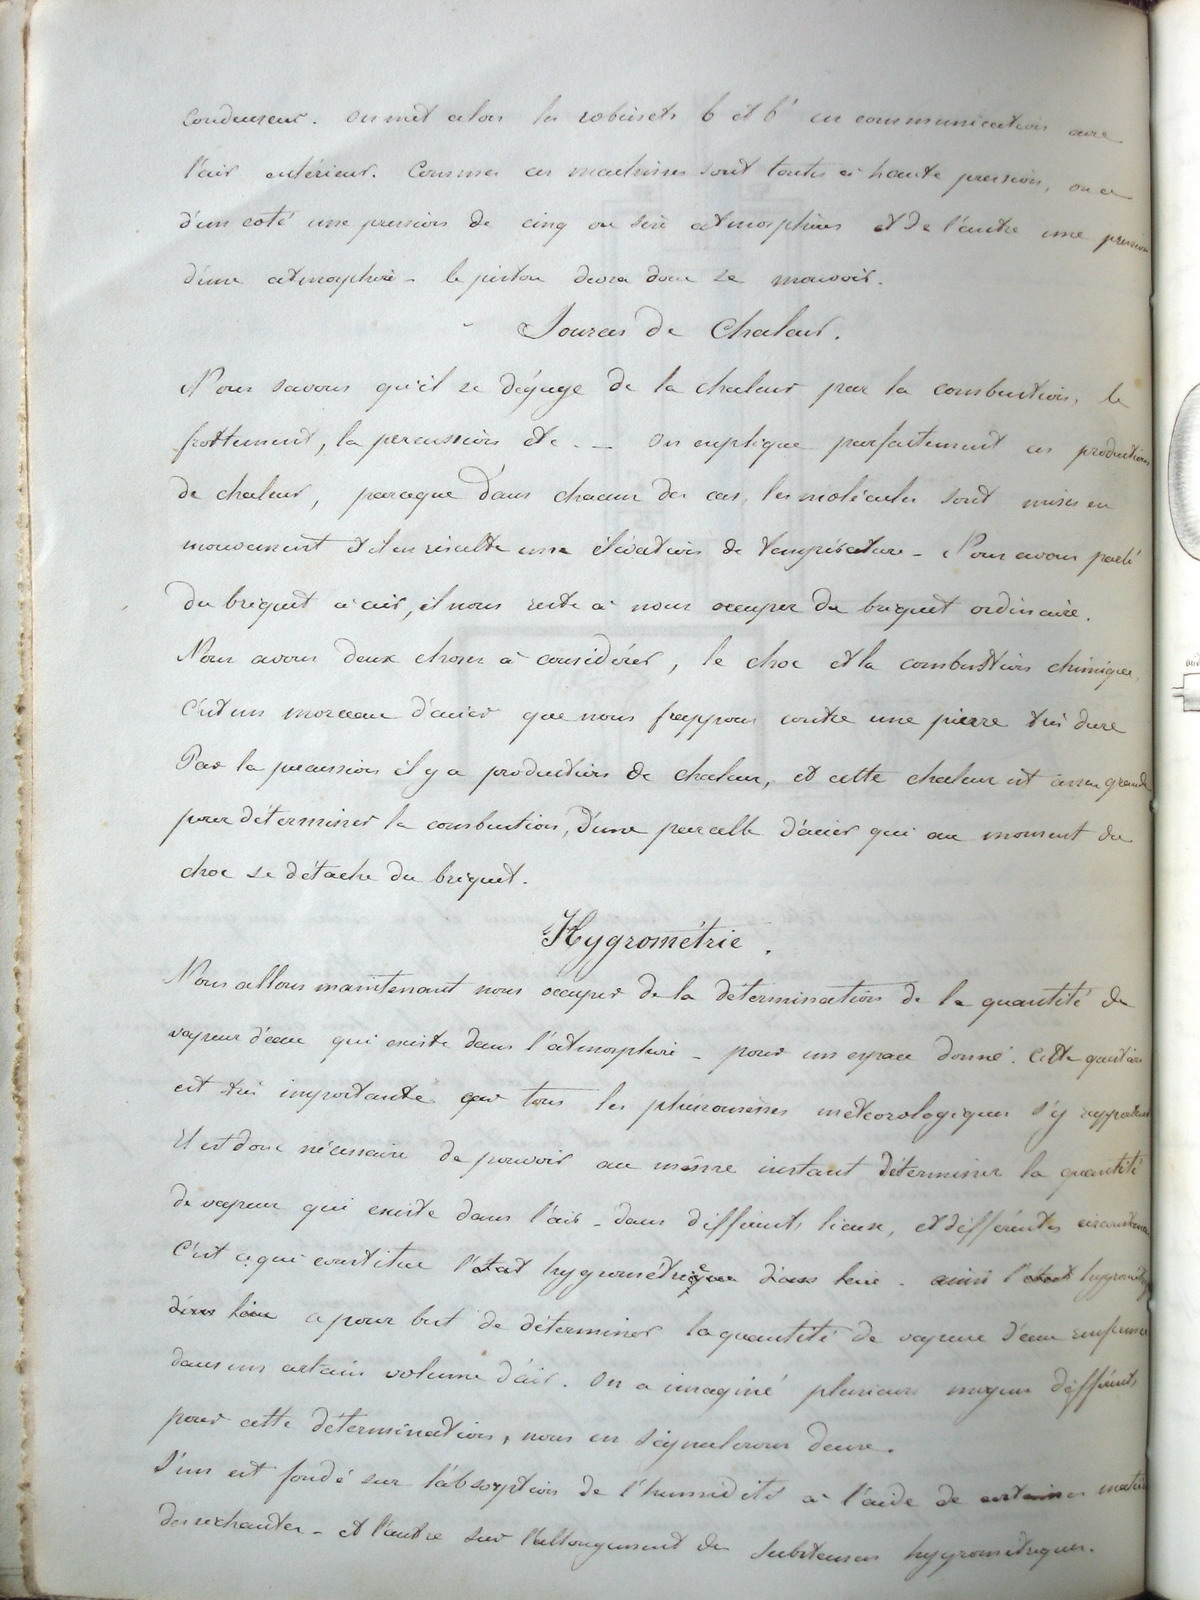 Condenseur. On met alors les robinets b et b' en communication avec
l'air extérieur. Comme ces machines sont toutes à haute pression, on a
d'un coté une pression de cinq ou six atmosphères et de l'autre une pression
d'une atmosphère - le piston devra donc se mouvoir.
Sources de Chaleur.
Nous savons qu'il se dégage de la chaleur par la combustion, le
frottement, la percussion etc. — On explique parfaitement ces productions
de chaleur, parceque dans chacun des cas, les molécules sont mises en
mouvement et il en résulte une élévation de température - Nous avons parlé
du briquet à air, il nous reste à nous occuper du briquet ordinaire.
Nous avons deux choses à considérer, le choc et la combustion chimique,
C'est un morceau d'acier que nous frappons contre une pierre très dure
Par la percussion il y a production de chaleur, et cette chaleur est assez grande
pour déterminer la combustion, d'une parcelle d'acier qui au moment du
choc se détache du briquet.
Hygrométrie.
Nous allons maintenant nous occuper de la détermination de la quantité de
vapeur d'eau qui existe dans l'atmosphère - pour un espace donné. Cette question
est très importante car tous les phénomènes météorologiques s'y rapportent
Il est donc nécessaire de pouvoir au même instant déterminer la quantité
de vapeur qui existe dans l'air - dans différents lieux, et différentes circonstances
C'est ce qui constitue l'état hygrométrique d'un lieu - ainsi l'état
d'un lieu a pour but de déterminer la quantité de vapeur d'eau
dans un certain volume d'air. On a imaginé plusieurs moyens différents
pour cette détermination, nous en signalerons deux.
L'un est fondé sur l'absorption de l'humidité à l'aide de certaines
desséchantes - et l'autre sur l'allongement des substances hygrométriques.